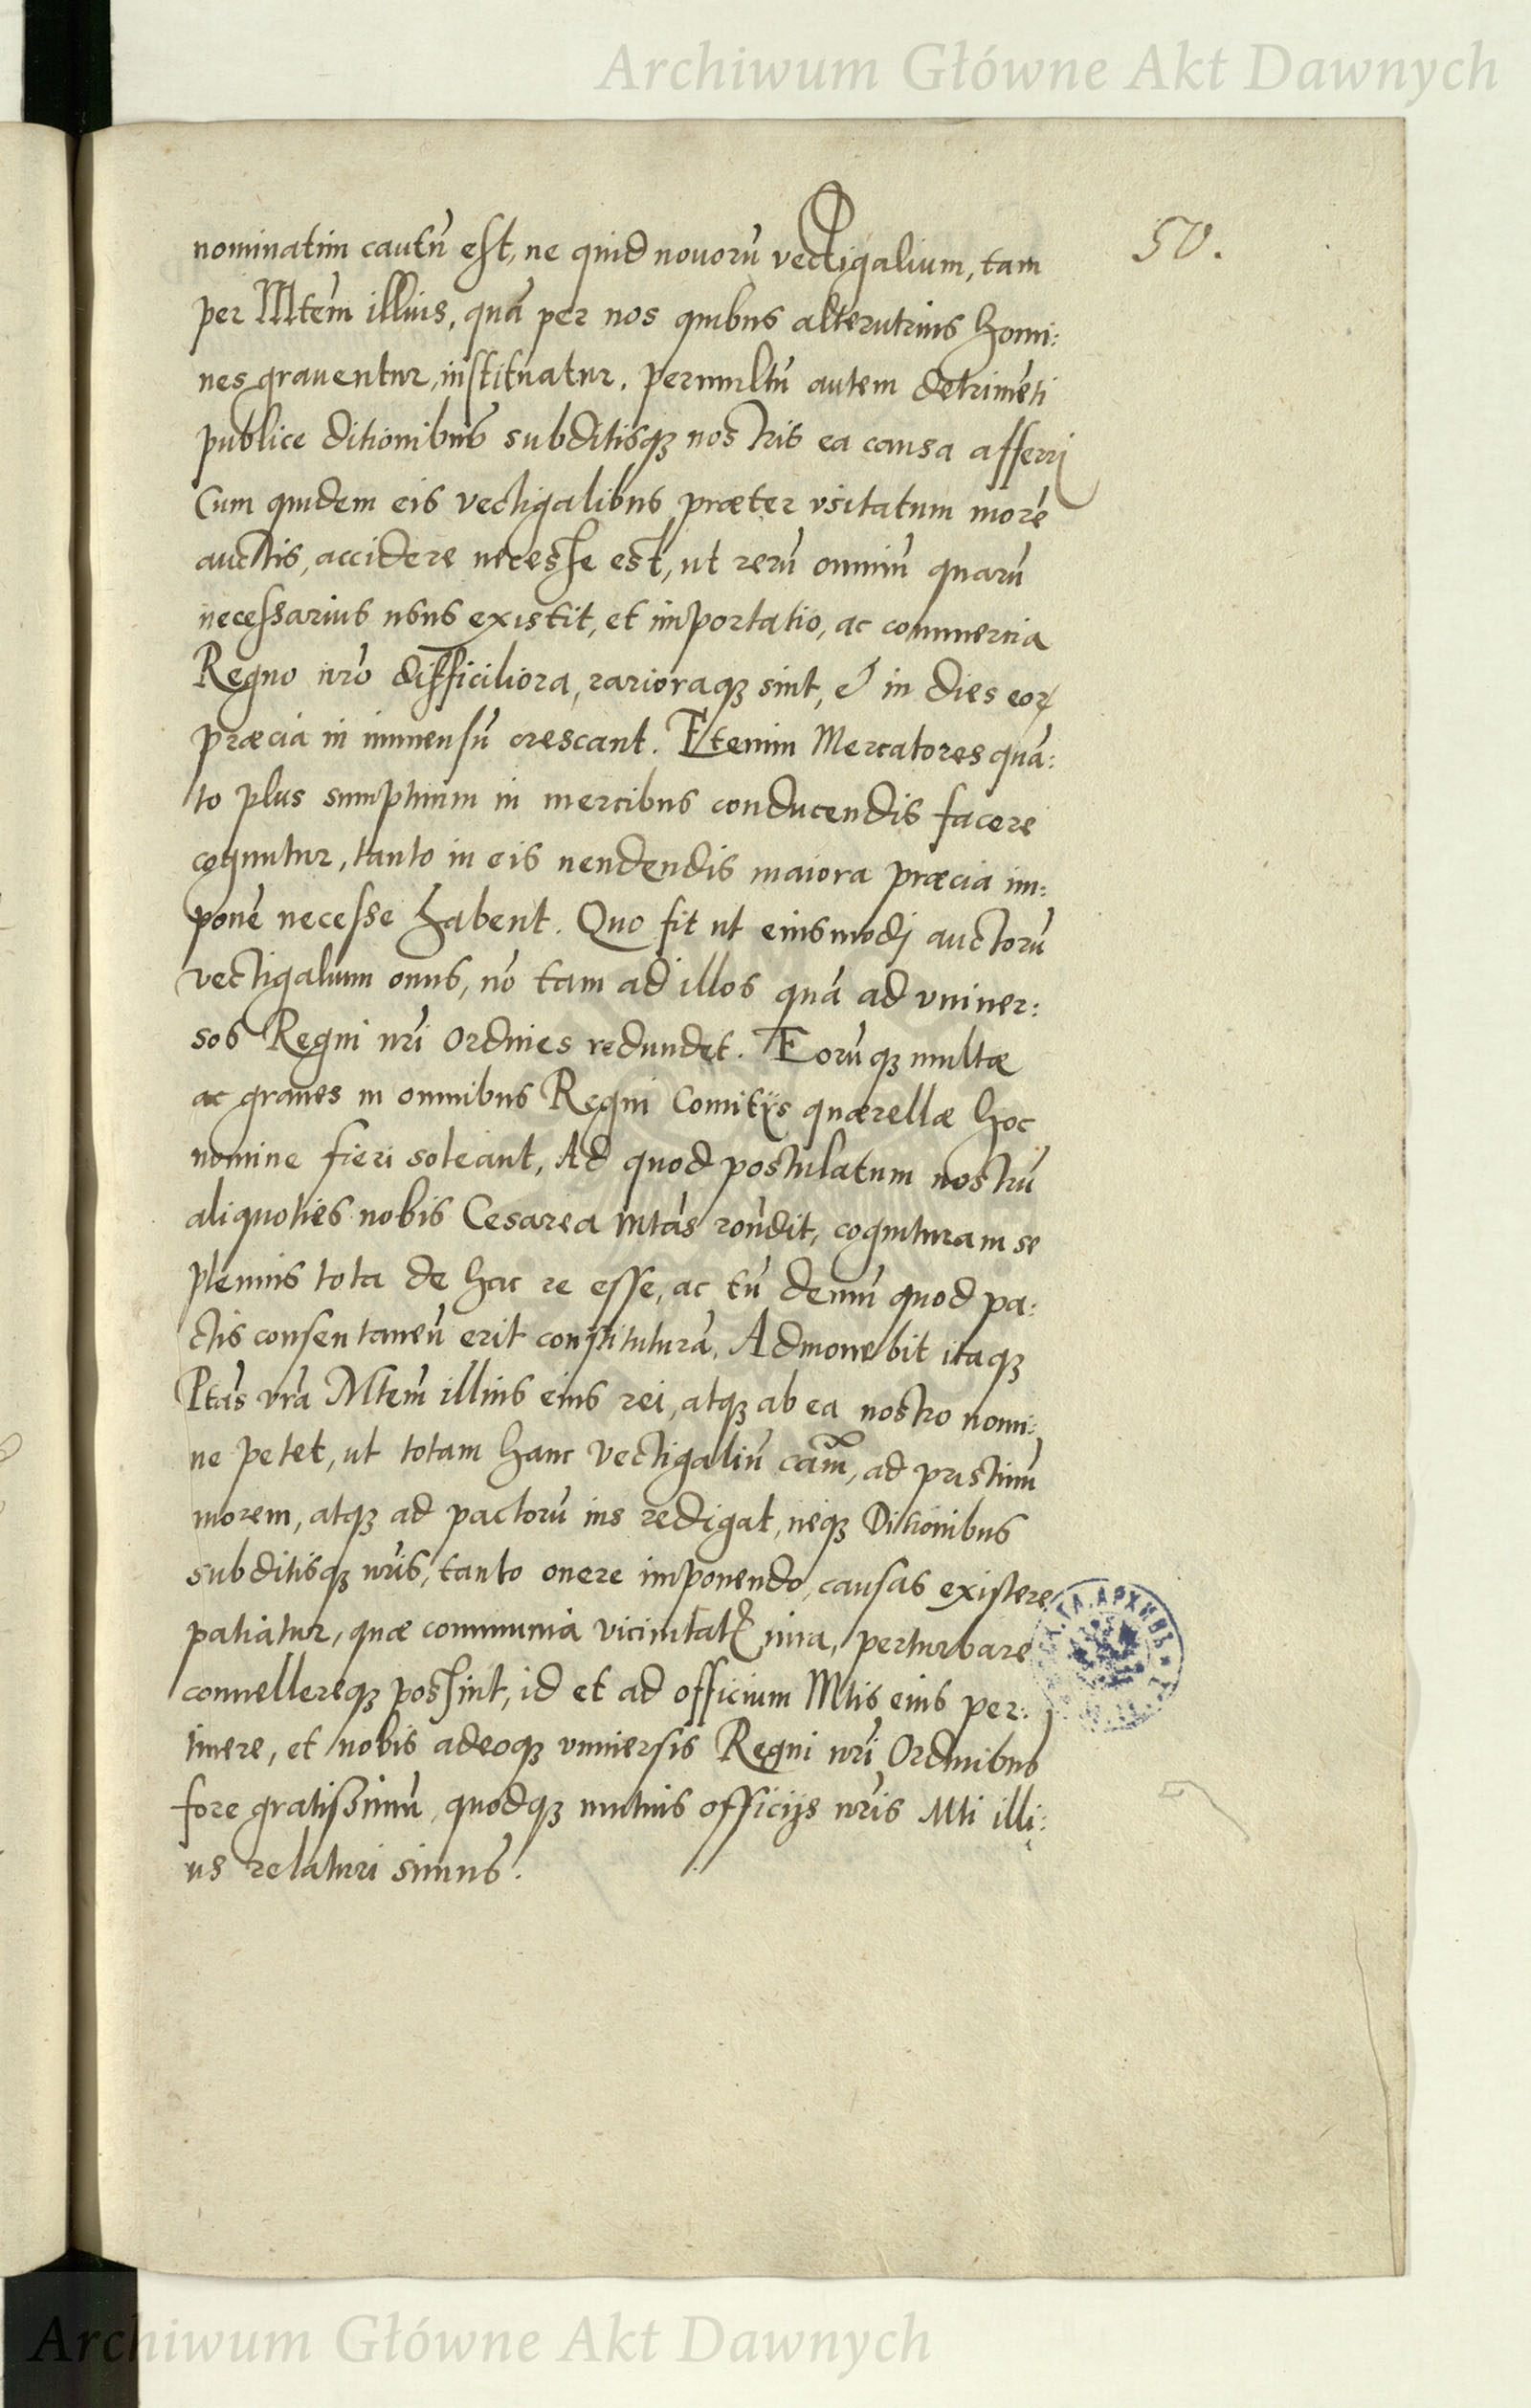 Archiwum Główne Akt Dawnych
50.
nominatim cautũ est, ne quid nouorũ vectigalium, tam
per Mtem̃ illius, quã per nos quibus alterutrius homi:
nes grauentur, instituatur. Permultũ autem detrimẽti
publice ditionibus subditisq₃ nostris ea causa afferri
Cum quidem eis vectigalibus præter vsitatum morẽ
auctis, accidere necesse est, ut rerũ omniũ quarũ
necessarius usus existit, et importatio, ac commercia
Regno nrõ difficiliora, rarioraq₃ sint, & in dies eoꝝ
præcia in immensũ crescant. Etenim Mercatores quã:
to plus sumptuum in mercibus conducendis facere
coguntur, tanto in eis uendendis maiora præcia im:
ponẽ necesse habent. Quo fit ut eiusmodj auctorũ
vectigalium onus, nõ tam ad illos quã ad vniuer:
sos Regni nrĩ Ordines redundet. Eorũq₃ multæ
ac graues in omnibus Regni Comitÿs quærellæ hoc
nomine fieri soleant, Ad quod postulatum nostrũ
aliquoties nobis Cesarea Mtãs rõndit, cognituram se
plenius tota de hac re esse, ac tũ demũ quod pa:
ctis consentaneũ erit constituturã. Admonebit itaq₃
Ptãs vrã Mtem̃ illius eius rei, atq₃ ab ea nostro nomi:
ne petet, ut totam hanc vectigaliũ cãm, ad pristinũ
morem, atq₃ ad pactorũ ius redigat, neq₃ Ditionibus
subditisq₃ nrĩs, tanto onere imponendo, causas existere
patiatur, quæ communia vicinitatꝭ iura, perturbare
conuellereq₃ possint, id et ad officium Mtis eius per:
tinere, et nobis adeoq₃ vniuersis Regni nrĩ Ordinibus
fore gratissimũ, quodq₃ mutuis officijs nrĩs Mti illi:
us relaturi simus.
АРХИВЪ
Archiwum Główne Akt Dawnych